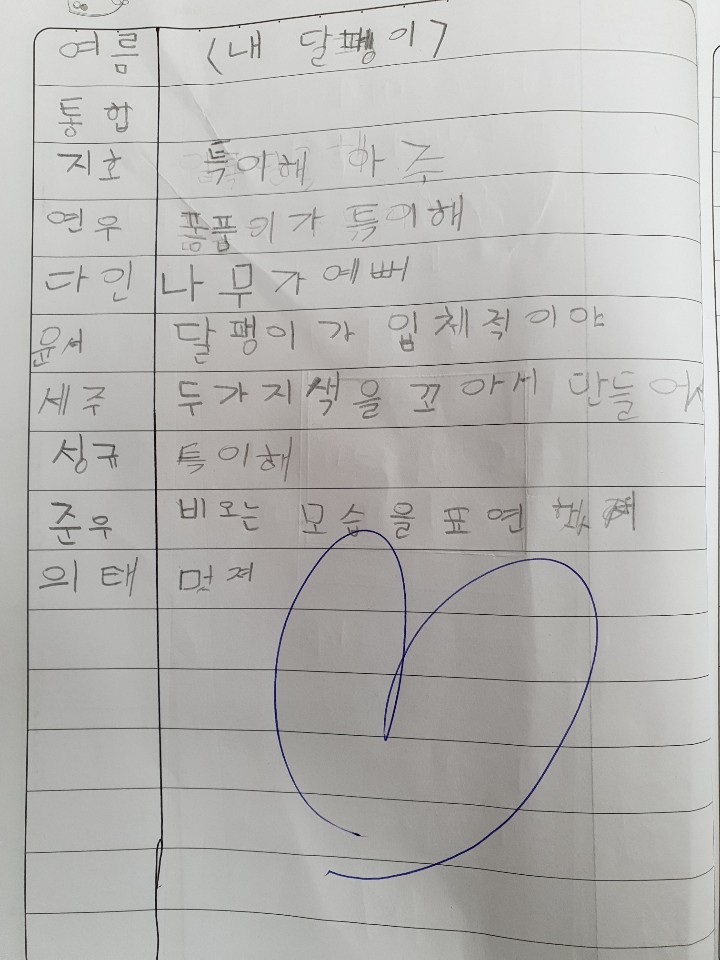 여름 〈내 달팽이〉
통합
지호 특이해 아주
연우 품품이가 특이해
다인 나무가 예뻐
윤서 달팽이가 입체적이야
세주 두가지색을 꼬아서 만들어서
상규 특이해
준우 비오는 모습을 표연
의태 먼져